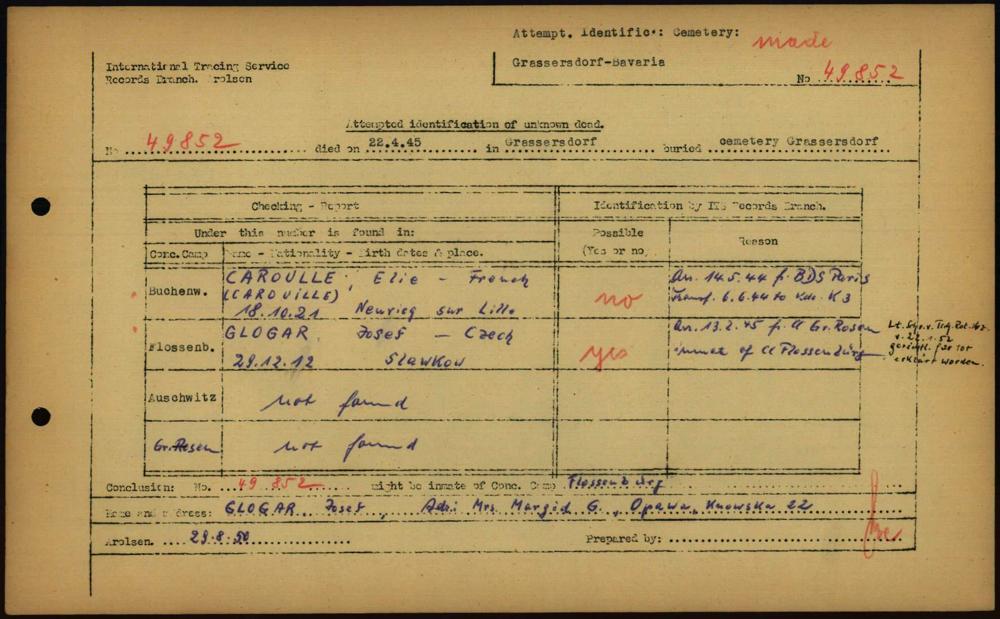 Attempt. Identific.: Cemetery: made
Grassersdorf-Bavaria
No 49852
International Tracing Service
Records Branch. Arolsen
Attempted identification of unknown dead.
No 49852 died on 22.4.45 in Grassersdorf buried cemetery Grassersdorf
Checking - Report
Identification by ITS Records Branch.
Under this number is found in:
Possible (Yes or no)
Reason
Conc.Camp Name - Nationality - Birth dates & place.
Buchenw.
CAROULLE, Elie - French
(CAROUILLE)
18.10.21 sur Lille
no
An. 14.5.44 f. BDS Paris
Transf. 6.6.44 to Kdo. K3
Flossenb.
GLOGAR Josef - Czech
29.12.12 Slawkow
yes
An. 13.2.45 f. Cl Gr. Rosen
inmate of Cl Flossenbürg
v. 22.1.52
für tot
erklärt worden.
Auschwitz not found
Gr.Rosen not found
Conclusion: No. 49 852 might be inmate of Conc. Camp Flossenbürg
Name and address: GLOGAR Josef, Adr: Mrs. Margid G., Opawa, 22
Arolsen. 29.8.50 Prepared by: